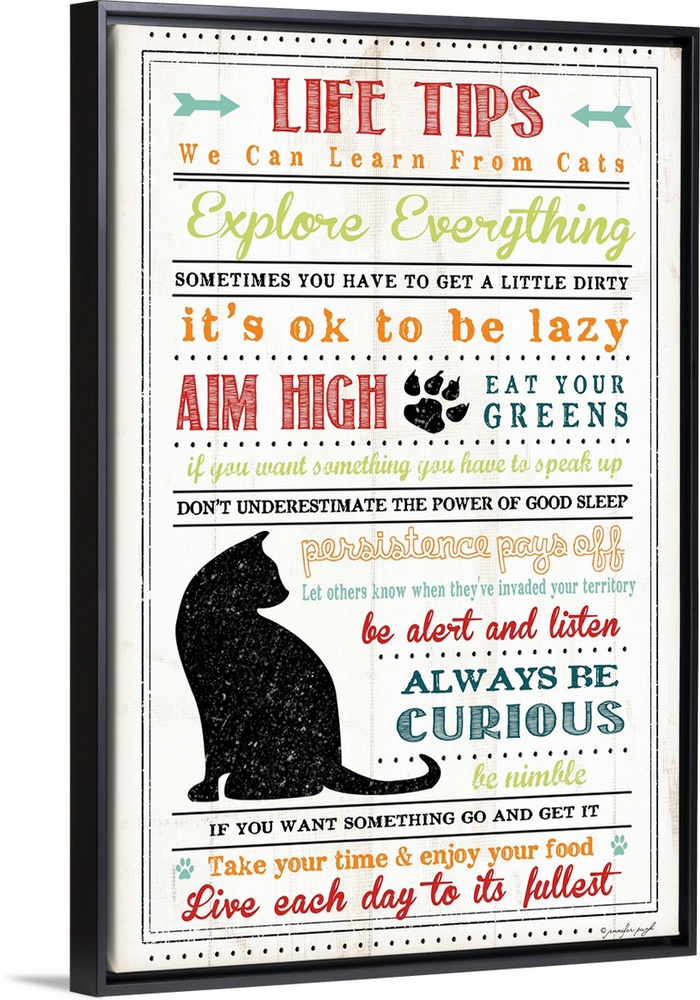 LIFE TIPS
We Can Learn From Cats
Explore Everything
SOMETIMES YOU HAVE TO GET A LITTLE DIRTY
it's ok to be lazy
AIM HIGH
EAT YOUR
GREENS
if you want something you have to speak up
DON'T UNDERESTIMATE THE POWER OF GOOD SLEEP
persistence pays off
Let others know when they've invaded your territory
be alert and listen
ALWAYS BE
CURIOUS
be nimble
IF YOU WANT SOMETHING GO AND GET IT
Take your time & enjoy your food
Live each day to its fullest
© jennifer pugh